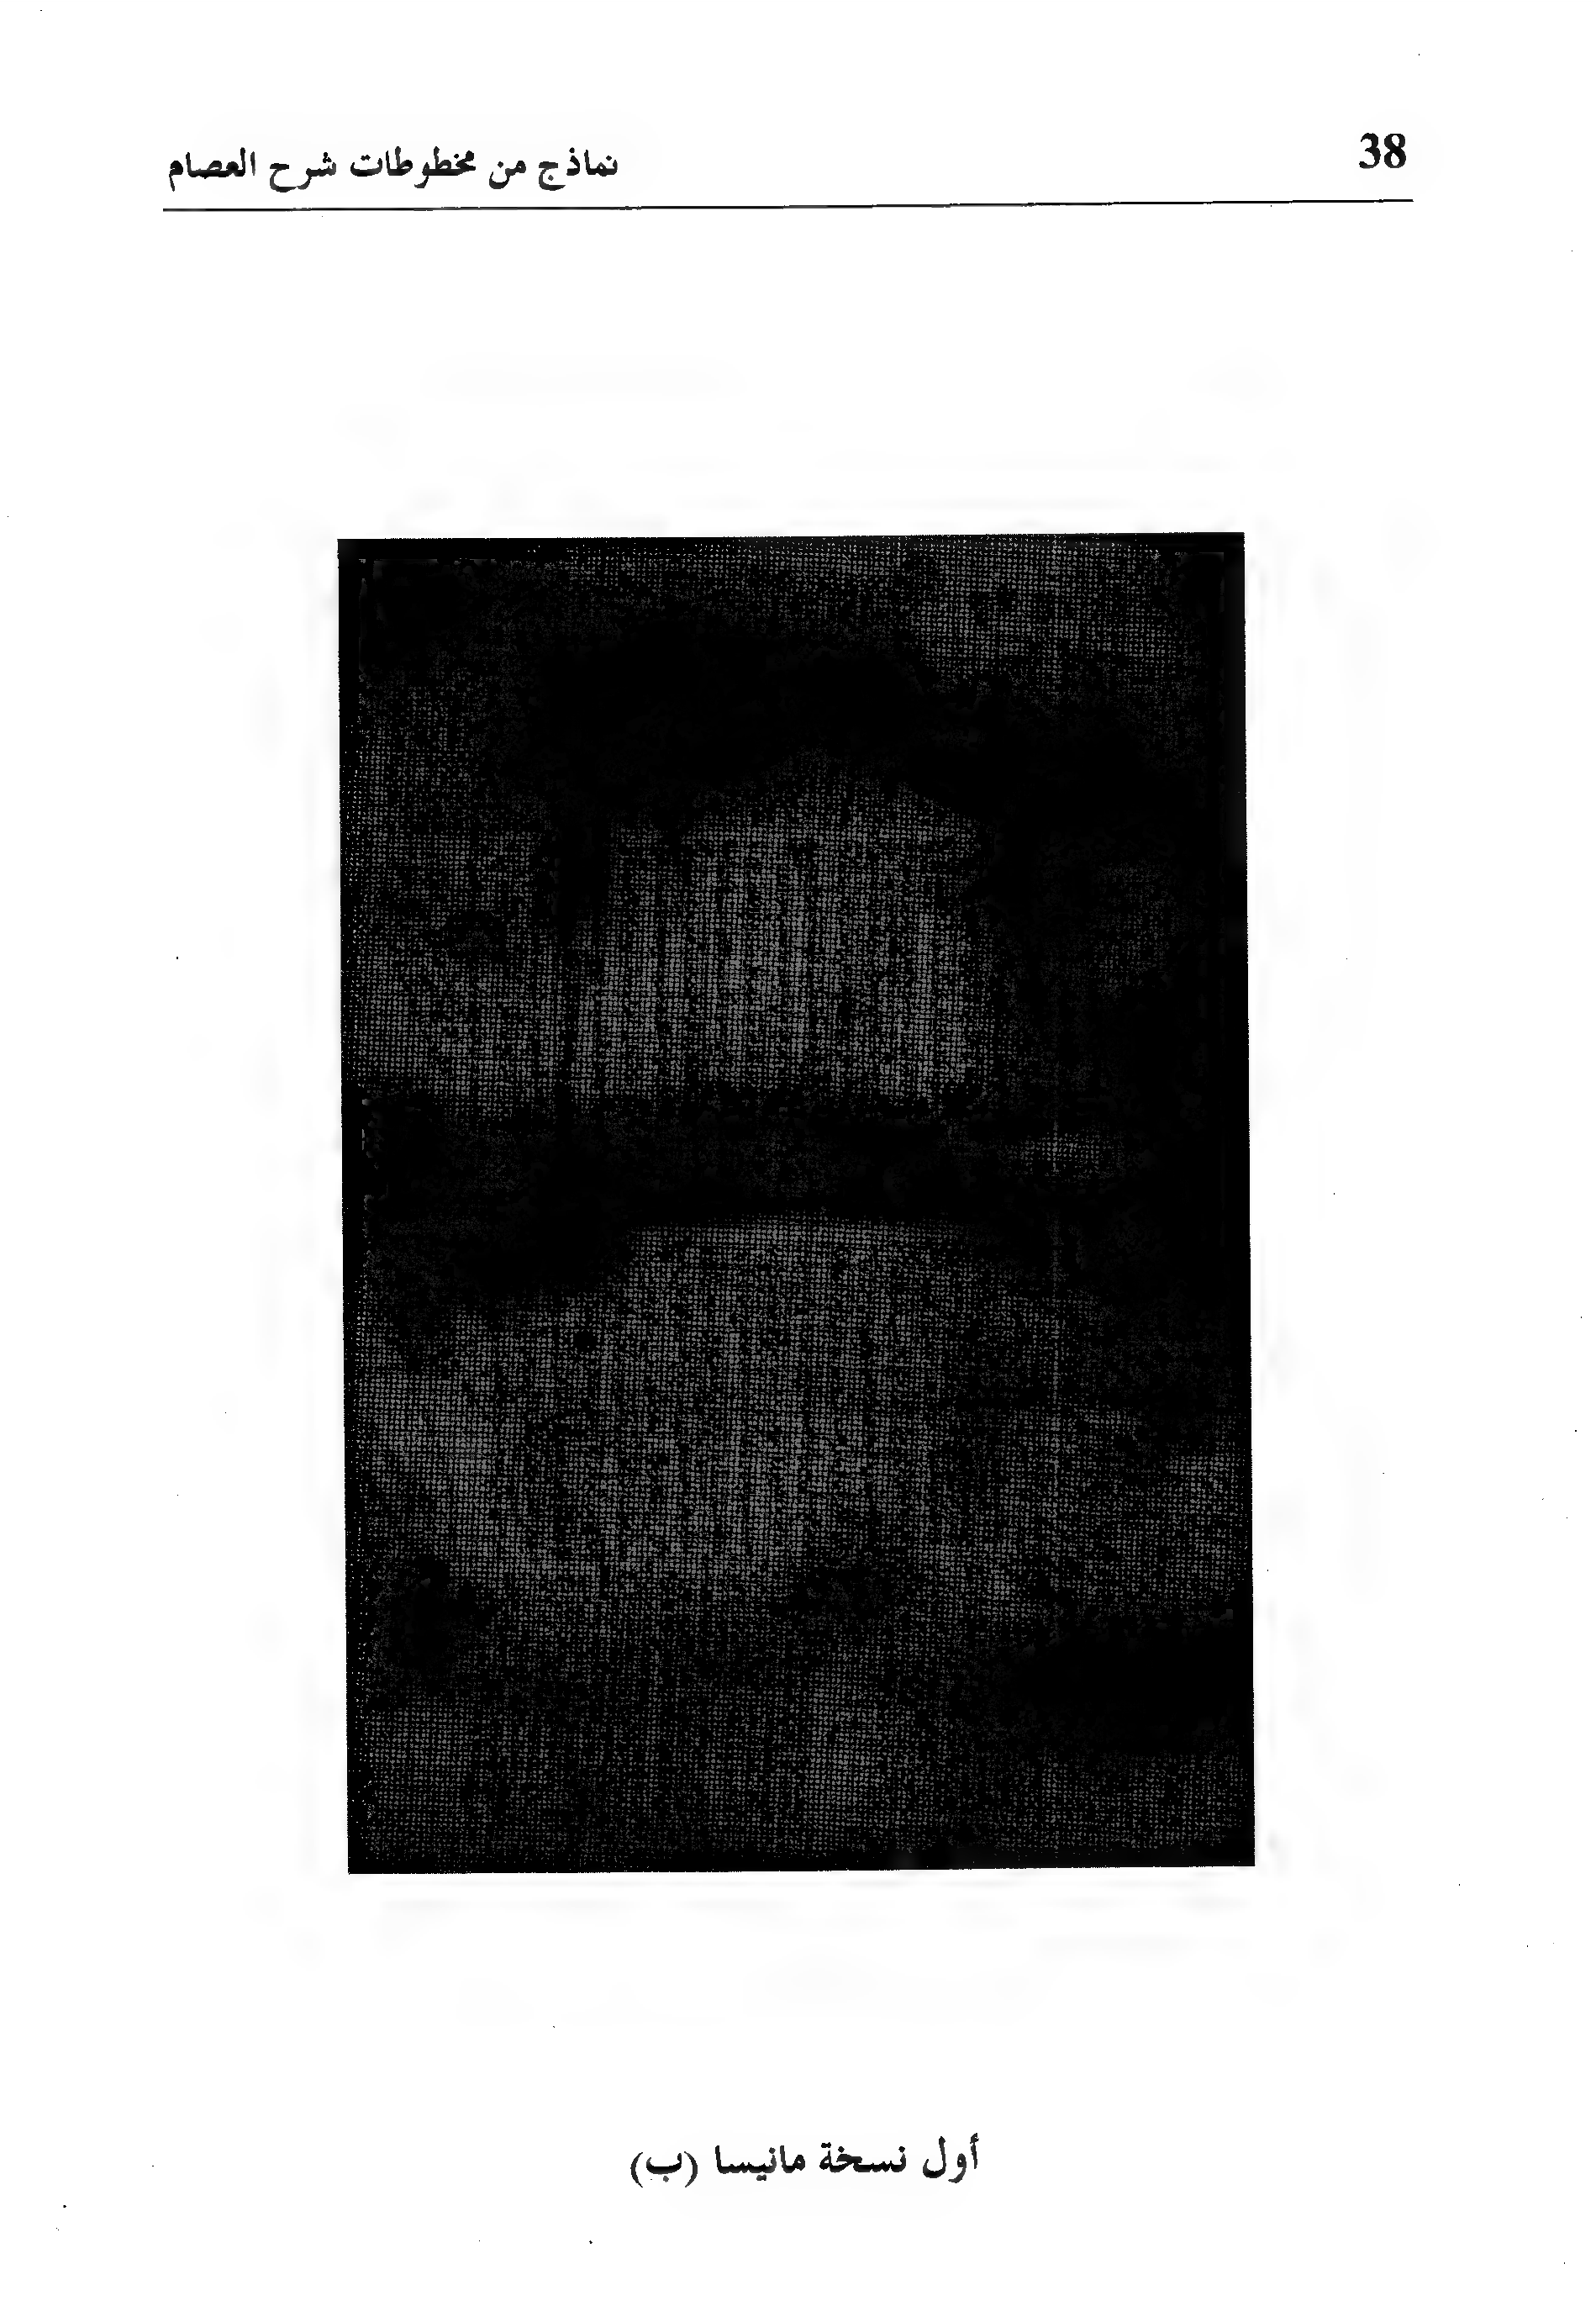 38
نماذج من مخطوطات شرح العصام
أول نسخة مانيسا (ب)